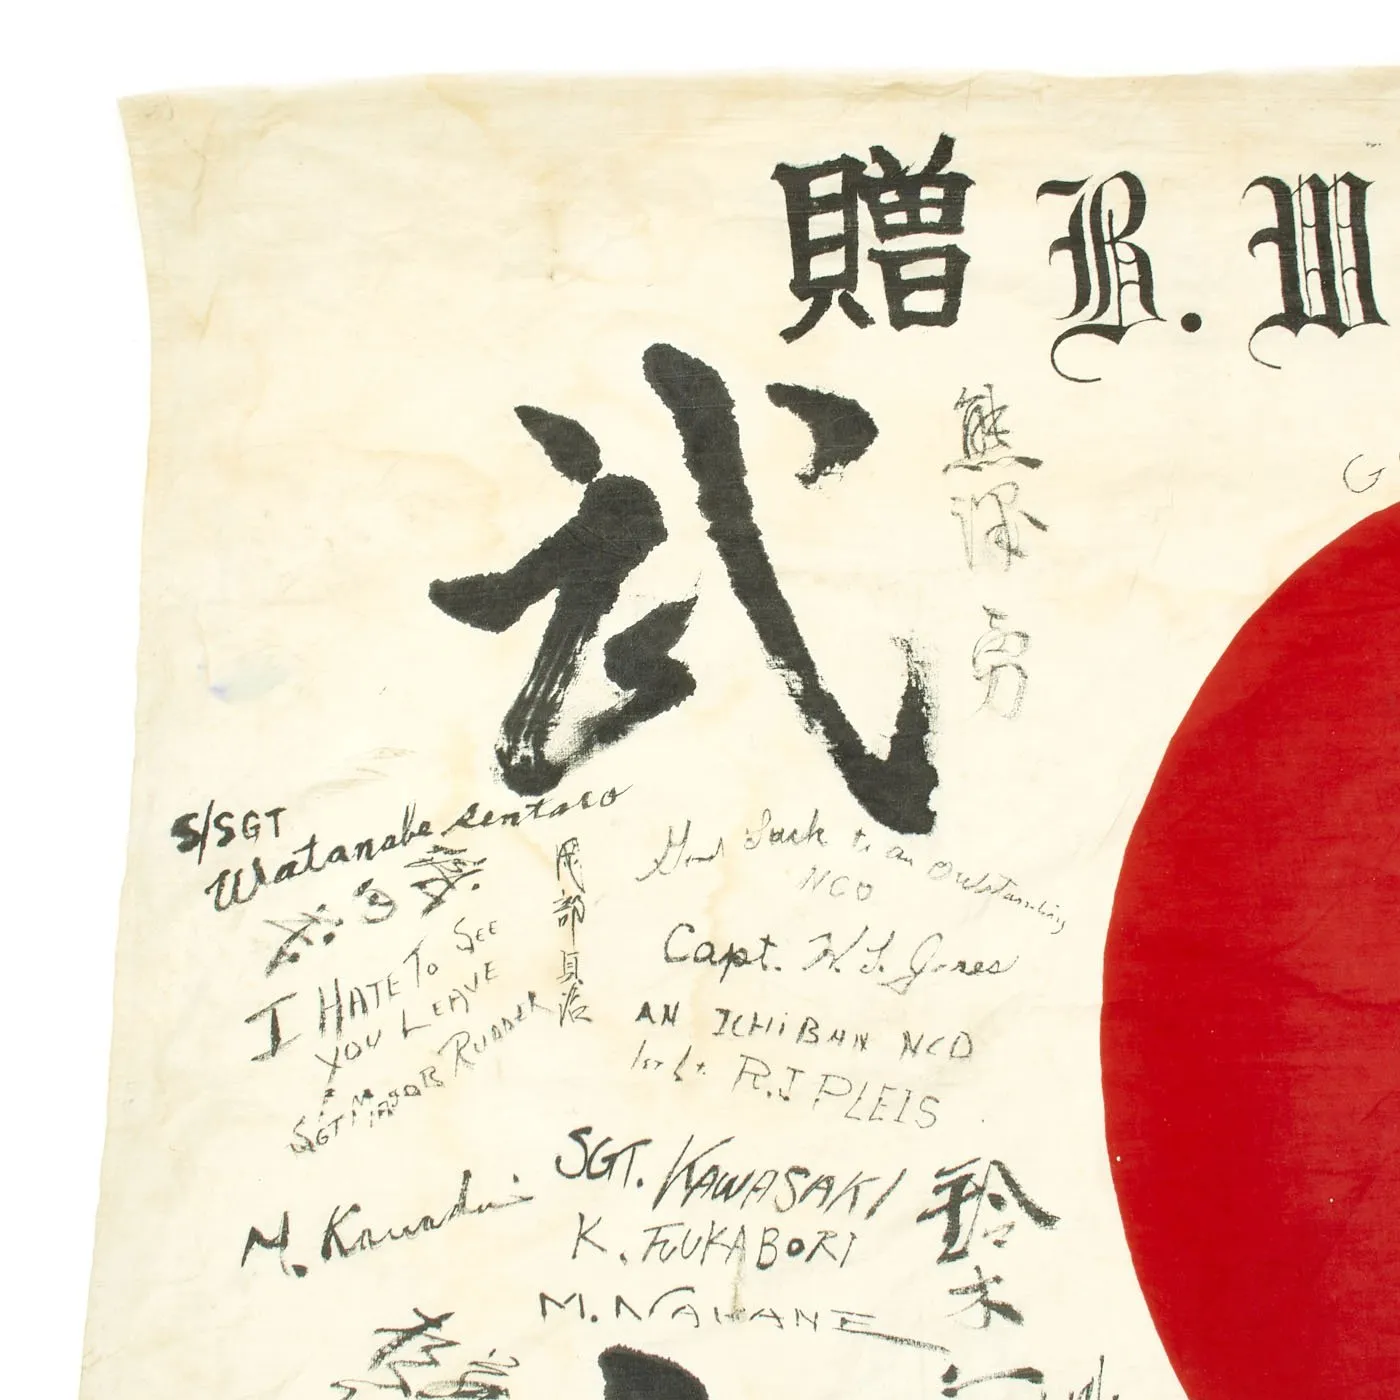 贈 B. W
武
熊沢 勇
S/SGT
Watanabe Sentaro
I HATE TO SEE
YOU LEAVE
SGT MAJOR RUDDER
岡部貞治
Good Luck to an Outstanding
NCO
Capt. W. S. Jones
AN ICHIBAN NCO
1st Lt. R.J PLEIS
SGT. KAWASAKI
K. FUUKABORI
M. NAKANE
鈴木